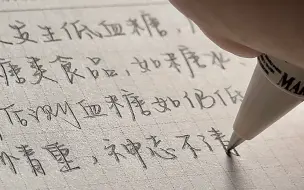 发生低血糖，
糖类食品，如糖水
低 血糖如仍低
情重，神志不清
MAR